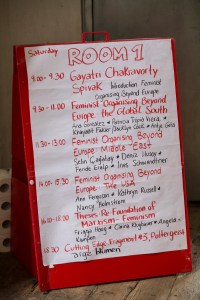 Saturday
ROOM 1
9.00-9.30 Gayatri Chakravorty
Spivak Introduction Feminist
Organising Beyond Europe
9.30-11.00 Feminist Organising Beyond
Europe: the Global South
Ana Gonzales * Patricia Tropia Viera *
Khayaat Fakier * Antje Géra
11-13.00 Feminist Organising Beyond
Europe: Middle East
Selin Çağatay * Deniz Ulusoy *
Feride Eralp * Ines Schwerdtner
14.00-15.30 Feminist Organising Beyond
Europe: The USA
Ana Ferguson * Kathryn Russell *
Nancy Holmstrom
16.00-18.00 Thesis Re-Foundation of
Marxism-Feminism
Frigga Haug * Carina Klugbauer *
18.30 Cutting Edge Fragment #5, Poltergeng
Blumen